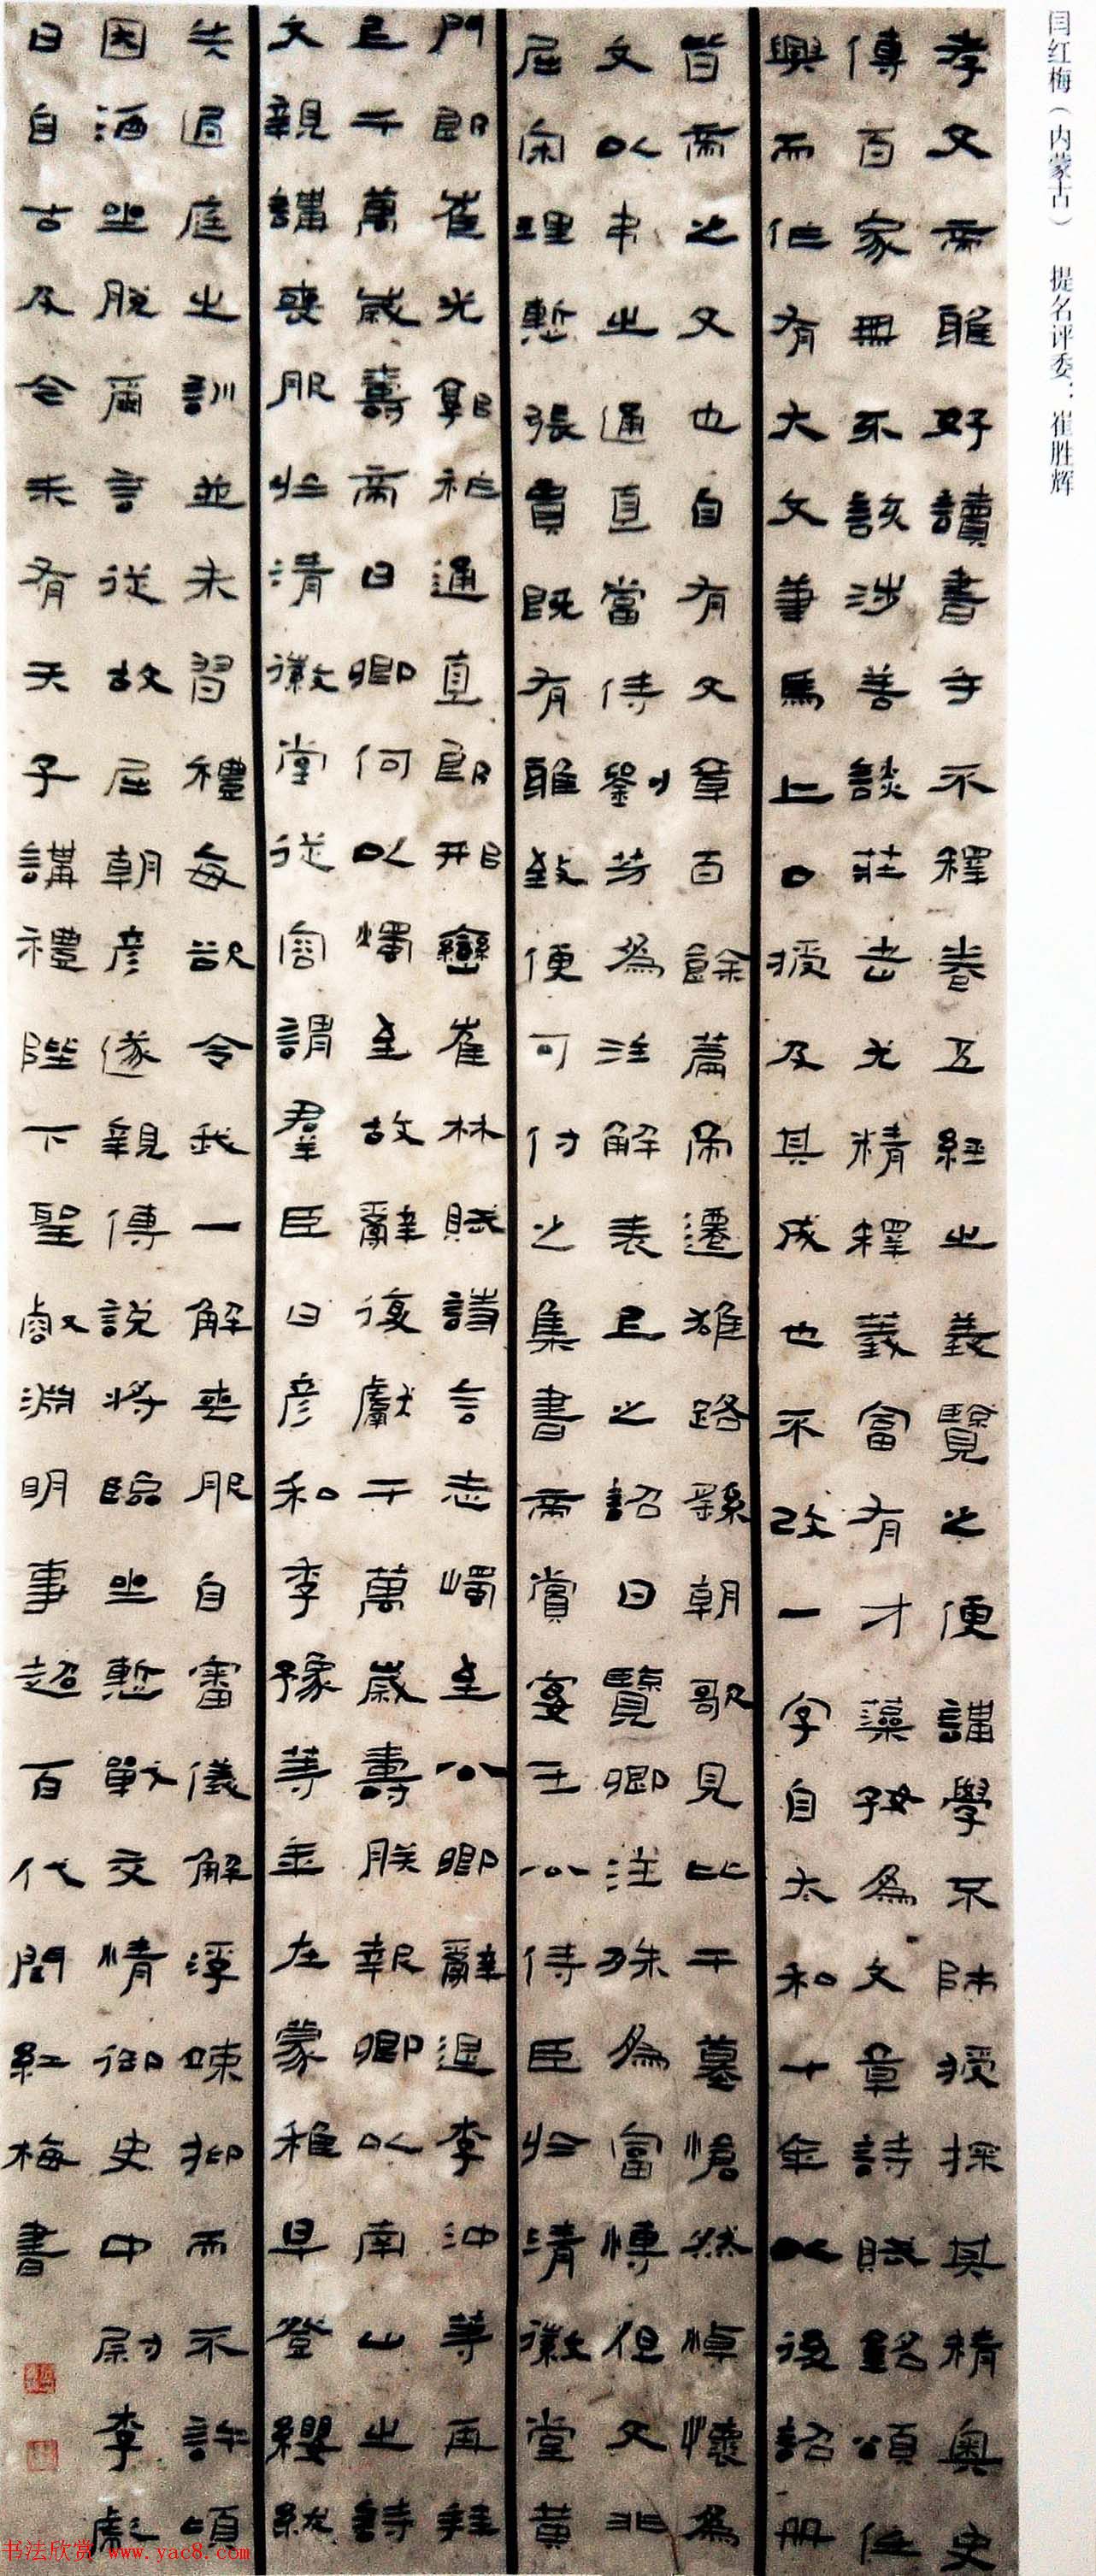 闫红梅（内蒙古） 提名评委：崔胜辉
孝文帝雅好讀書手不釋卷五經之義覽之便講學不師授探其精奧史
傳百家無不該涉善談莊老尤精釋義富有才藻好為文章詩賦銘頌任
興而作有大文筆馬上口授及其成也不改一字自太和十年以後詔冊
皆帝之文也自有文章百餘篇帝遷雒路繇朝歌見比干墓愴然悼懷為
文以弔之通直當侍劉芳為注解表上之詔曰覽卿注殊為富博但文非
屈宋理慙張賈既有雅致便可付之集書帝賞宴王公侍臣於清徽堂黃
門郎崔光郭祚通直郎邢巒崔林賦詩言志燭至公卿辭退李沖等再拜
上千萬歲壽帝曰卿何以燭至故辭復獻千萬歲壽朕報卿以南山之詩
文親講喪服於清徽堂從容謂羣臣曰彥和李豫等年在蒙稚早登纓紱
失過庭之訓並未習禮每欲令我一解喪服自審儀解浮疎抑而不許頃
因酒坐脫爾言從故屈朝彥遂親傳說將臨坐慙戰交情御史中尉李彪
曰自古及今未有天子講禮陛下聖叡淵明事超百代閆紅梅書
书法欣赏 www.yac8.com